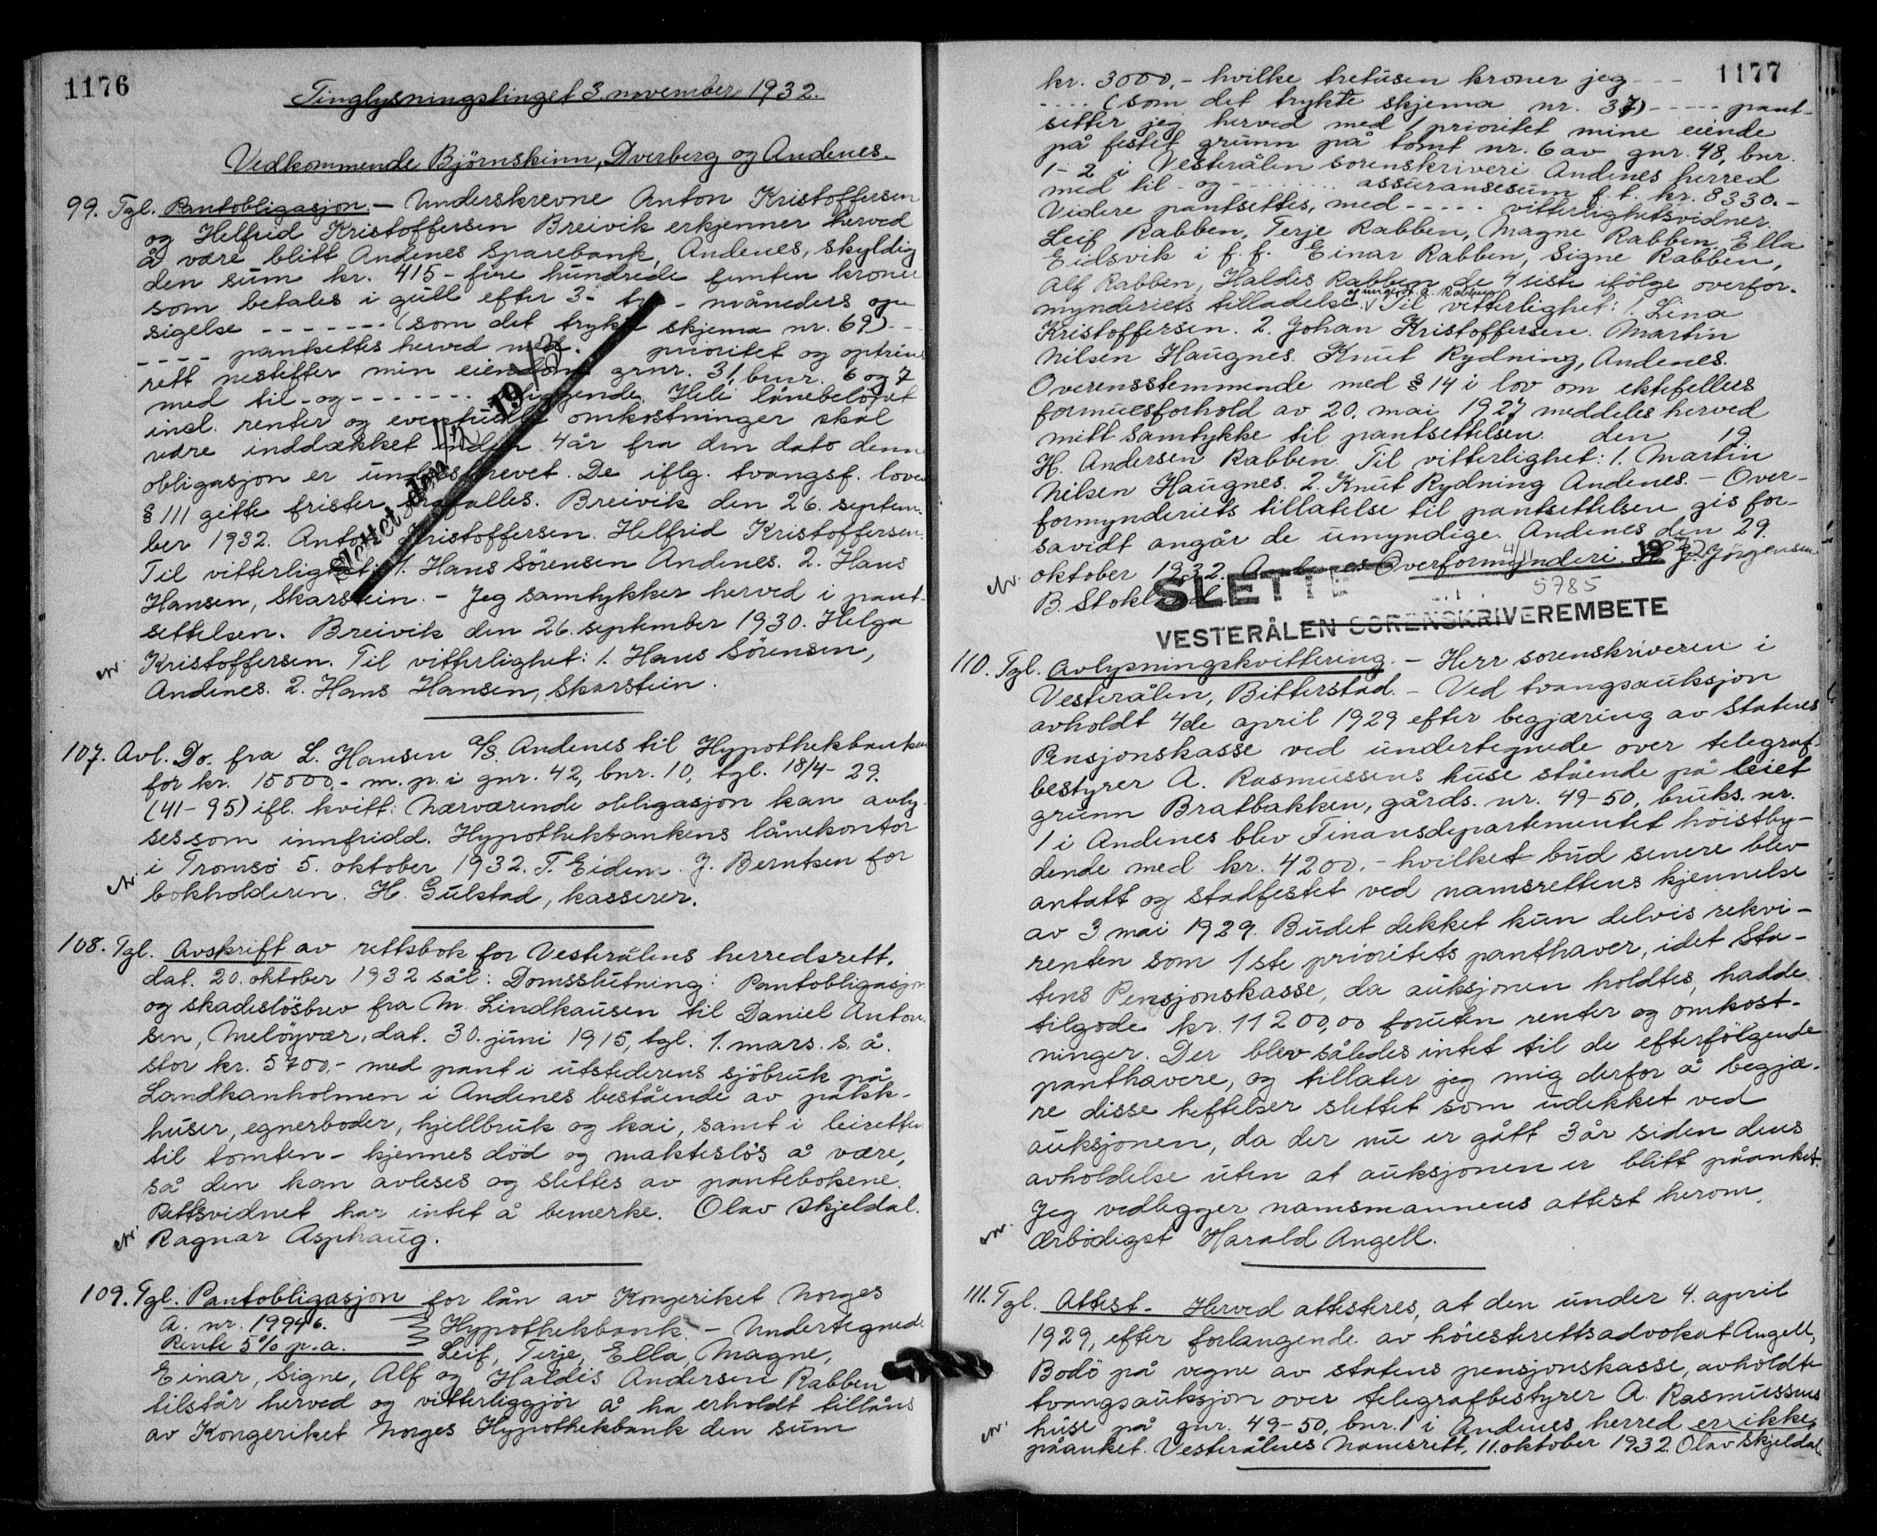 1176
Tinglysningstinget 3. november 1932.
Vedkommende Björnskinn, Dverberg og Andenes.
99. Tgl. Pantobligasjon. – Underskrevne Anton Kristoffersen
og Helfrid Kristoffersen Breivik erkjenner herved
å være blitt Andenes Sparebank, Andenes, skyldig
den sum kr. 415 – fire hundrede femten kroner
som betales i gull efter 3 - tre - måneders opp
sigelse - - - - - - - (som det trykte skjema nr. 69) - -
- - - - pantsettes herved med prioritet og optrins
rett nestefter min eiendom grnr. 31, bnr. 6 og 7
med til - og - - - - - - - liggende. Hele lånebelöpet
incl. renter og eventuelle omkostninger skal
være inddækket inden 4 år fra den dato denne
obligasjon er underskrevet. De iflg. tvangsf. loven
§ 111 gitte frister frafalles. Breivik den 26. septem-
ber 1932. Anton Kristoffersen. Helfrid Kristoffersen.
Til vitterlighet: 1. Hans Sörensen Andenes. 2. Hans
Hansen, Skarstein. – Jeg samtykker herved i pant-
settelsen. Breivik den 26. september 1930. Helga
Kristoffersen. Til vitterlighet: 1. Hans Sörensen,
Andenes. 2. Hans Hansen, Skarstein.
Slettet den 19
107. Avl. Do. fra L. Hansen A/S. Andenes til Hypothekbanken
for kr. 15000.- m. p. i gnr. 42, bnr. 10, tgl. 18/4 - 29.
(41 - 95) ifl. kvitt: Nærværende obligasjon kan avly-
ses som innfridd. Hypothekbankens lånekontor
i Tromsö 5. oktober 1932. T. Eidem. J. Berntsen for
bokholderen. H. Gulstad, kasserer.
108. Tgl. Avskrift av rettsbok for Vesterålens herredsrett.
dat. 20. oktober 1932 sål: Domsslutning: Pantobligasjon
og skadeslösbrev fra M. Lindkausen til Daniel Anton-
sen, Melöyvær, dat. 30. juni 1915, tgl. 1. mars. s. å.
stor kr. 5700.- med pant i utstederens sjöbruk på
Landkanholmen i Andenes bestående av pakk-
huser, egnerboder, hjellbruk og kai, samt i leieretten
til tomten – kjennes död og makteslös å være,
så den kan avleses og slettes av pantebökene.
Rettsvidnet har intet å bemerke. Olav Skjeldal.
Ragnar Asphaug.
109. Tgl. Pantobligasjon for lån av Kongeriket Norges
A. nr. 19946. Hypothekbank. – Undertegnede
Rente 5% p. a. Leif, Terje, Ella, Magne,
Einar, Signe, Alf og Haldis Andersen Rabben
tilstår herved og vitterliggjör å ha erholdt tillåns
av Kongeriket Norges Hypothekbank den sum
1177
kr. 3000.- hvilke tretusen kroner jeg - - -
- - - - (som det trykte skjema nr. 37) - - - - - pant-
setter jeg herved med 1 prioritet mine eiende
på festet grunn på tomt nr. 6 av gnr. 48, bnr.
1 - 2 i Vesterålen sorenskriveri Andenes herred
med til - og - - - - - - - - assuransesum f. t. kr. 8330.-
Videre pantsettes, med - - - - - vitterlighetsvidner,
Leif Rabben, Terje Rabben, Magne Rabben, Ella
Eidsvik i f. f. Einar Rabben, Signe Rabben,
Alf Rabben, Haldis Rabben de 4 siste ifölge overfor-
mynderiets tilladelse. Til vitterlighet: 1. Lina
Kristoffersen. 2. Johan Kristoffersen. Martin
Nilsen Haugnes. Knut Rydning, Andenes.
Overensstemmende med § 14 i lov om ektefellers
formuesforhold av 20. mai 1927 meddeles herved
mitt samtykke til pantsettelsen. den 19.
H. Andersen Rabben. Til vitterlighet: 1. Martin
Nilsen Haugnes. 2. Knut Rydning Andenes. – Over-
formynderiets tillatelse til pantsettelsen gis for-
såvidt angår de umyndige. Andenes den 29.
oktober 1932. Andenes Overformynderi. Jörgensen
B. Stoklund
SLETTE
5785
VESTERÅLEN SORENSKRIVEREMBETE
110. Tgl. Avlysningskvittering. – Herr sorenskriveren i
Vesterålen, Bitterstad. – Ved tvangsauksjon
avholdt 4de april 1929 efter begjæring av Statens
Pensjonskasse ved undertegnede over telegraf-
bestyrer A. Rasmussens huse stående på leiet
grunn Bratbakken, gårds. nr. 49-50, bruks. nr.
1 i Andenes blev Finansdepartementet höistby-
dende med kr. 4200.- hvilket bud senere blev
antatt og stadfestet ved namsrettens kjennelse
av 3. mai 1929. Budet dekket kun delvis rekvi-
renten som 1ste prioritets panthaver, idet Sta-
tens Pensjonskasse, da auksjonen holdtes, hadde
tilgode kr. 11200,00 foruten renter og omkost-
ninger. Der blev således intet til de efterfölgende
panthavere, og tillater jeg mig derfor å begjæ-
re disse heftelser slettet som udekket ved
auksjonen, da der nu er gått 3 år siden dens
avholdelse uten at auksjonen er blitt påanket.
Jeg vedlegger namsmannens attest herom.
Ærbödigst Harald Angell.
111. Tgl. Attest. – Herved attesteres, at den under 4. april
1929, efter forlangende av höiesterettsadvokat Angell,
Bodö på vegne av statens pensjonskasse, avholdte
tvangsauksjon over telegrafbestyrer A. Rasmussens
huse på gnr. 49-50, bnr. 1 i Andenes herred er ikke
påanket. Vesterålens Namsrett, 11. oktober 1932. Olav Skjeldal.